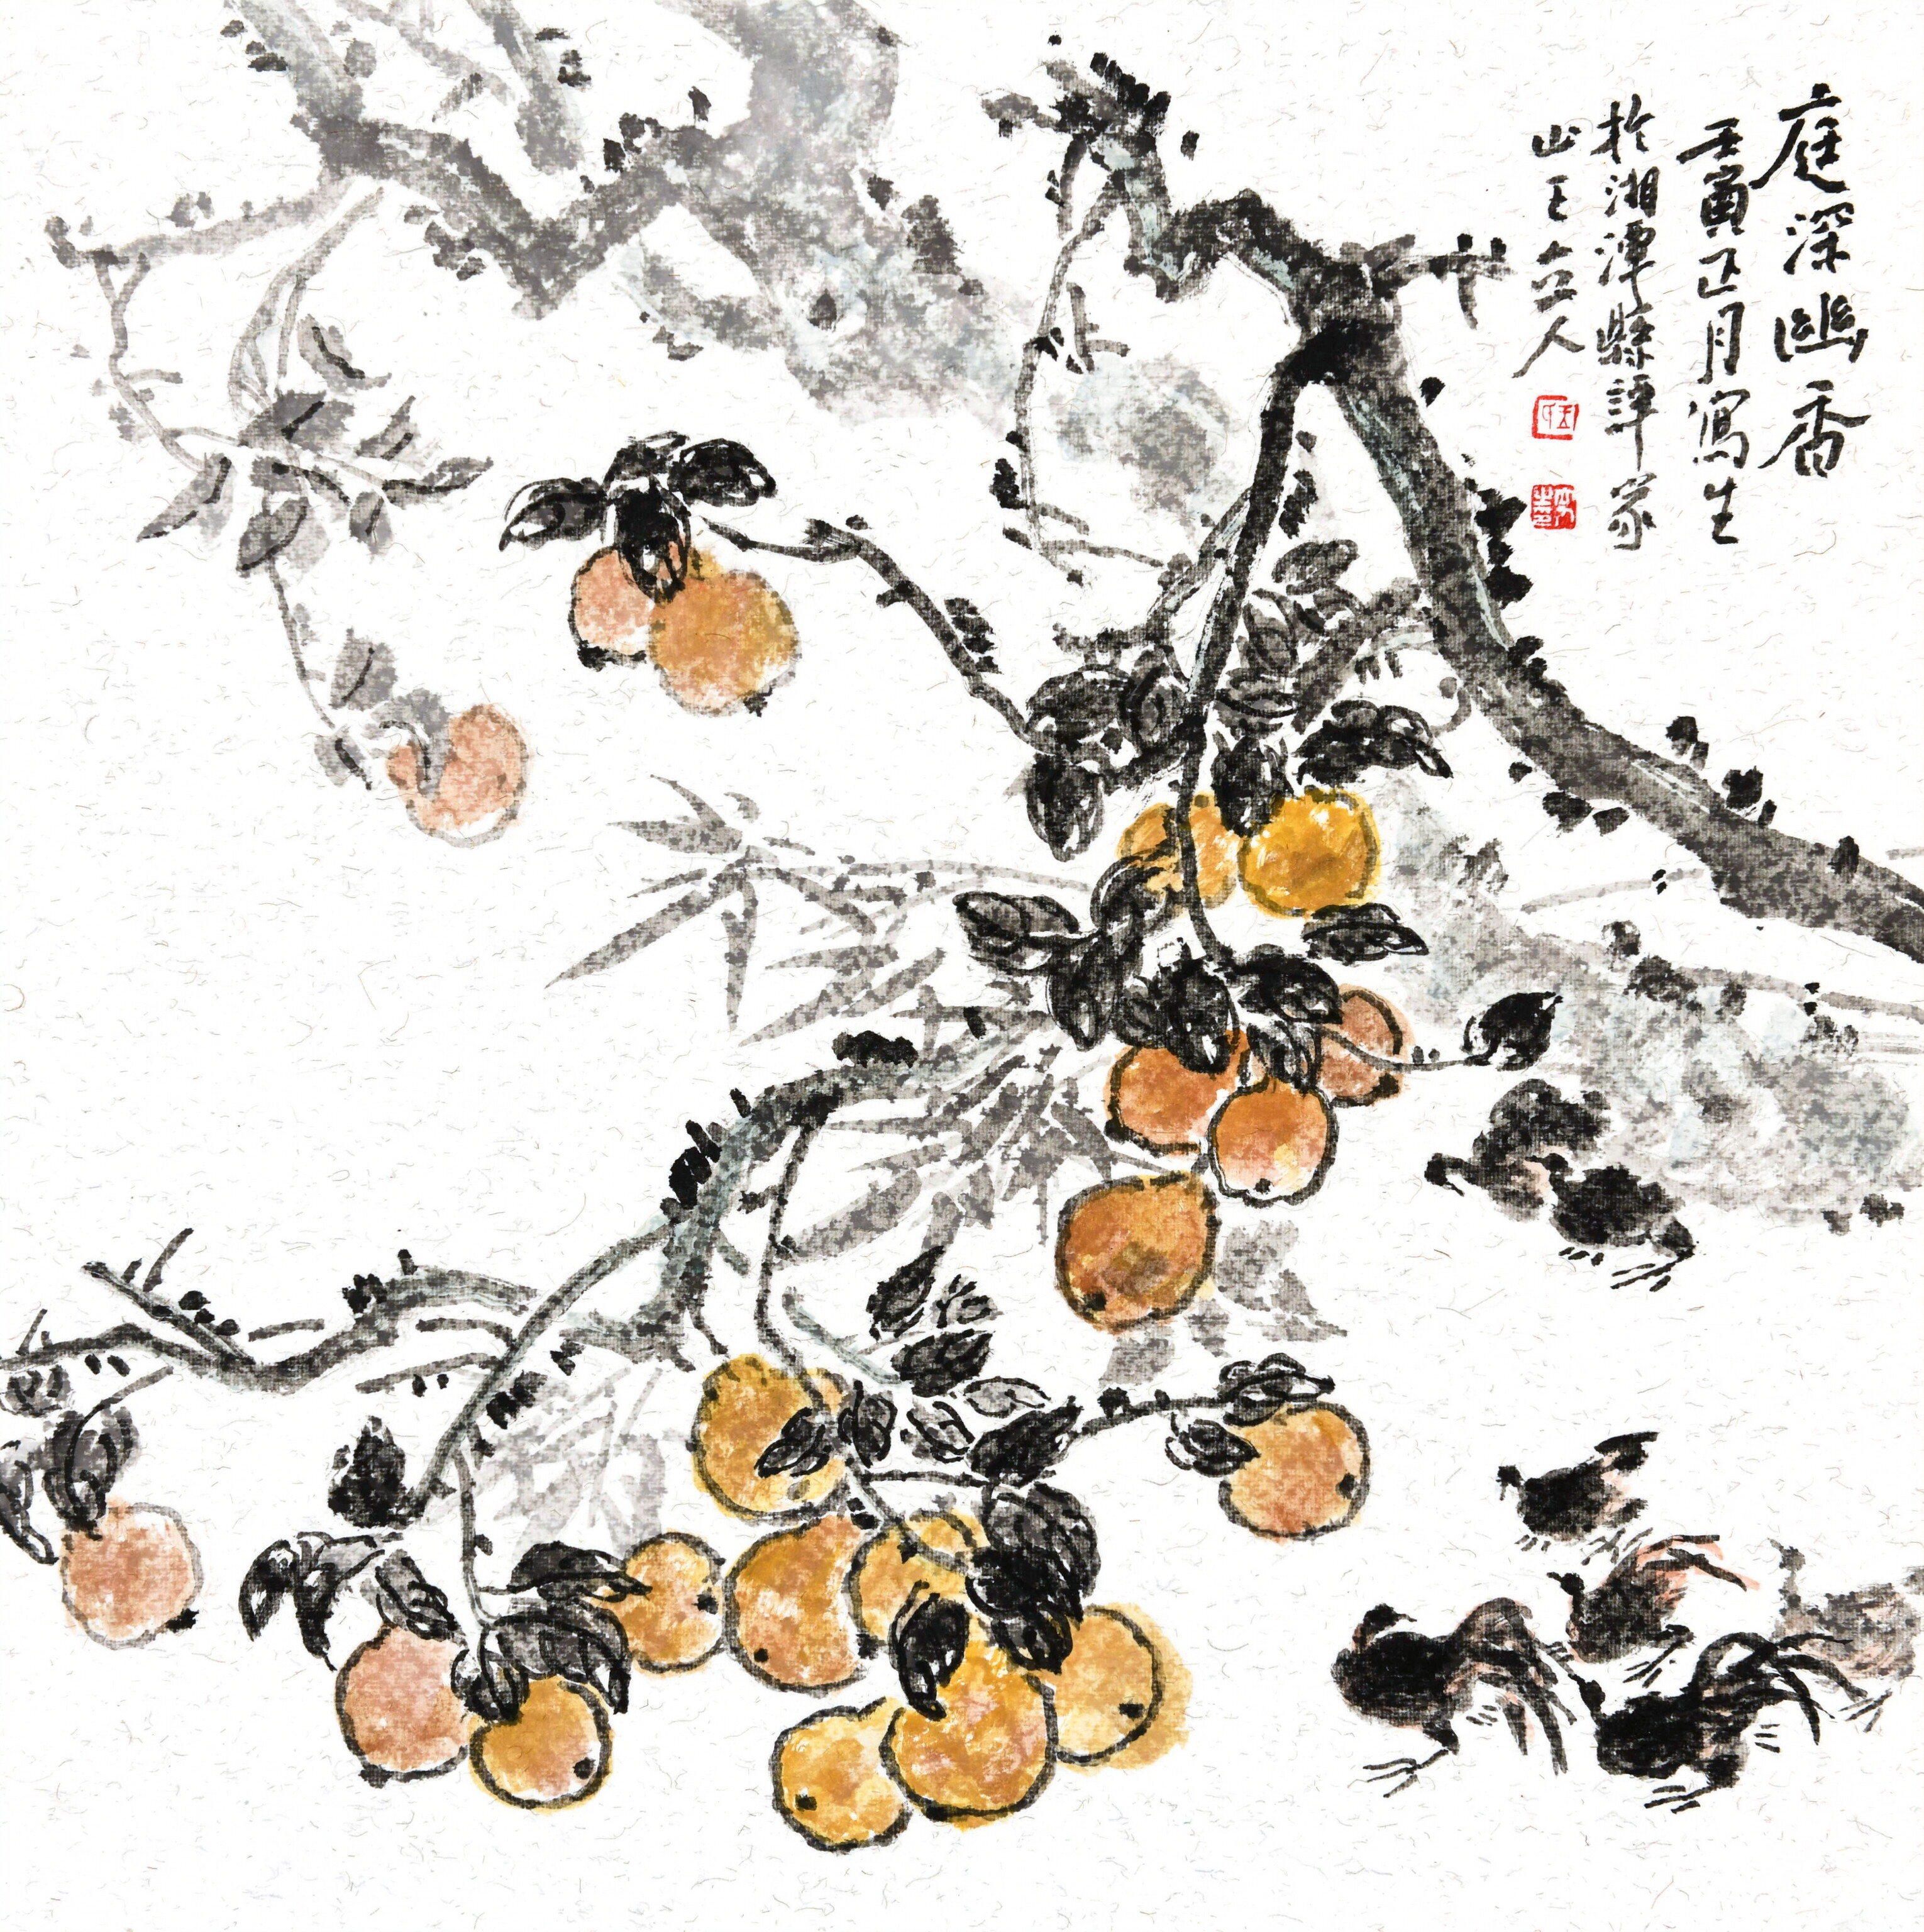 庭深幽香
壬寅正月寫生
於湘潭縣譚家
山 立人